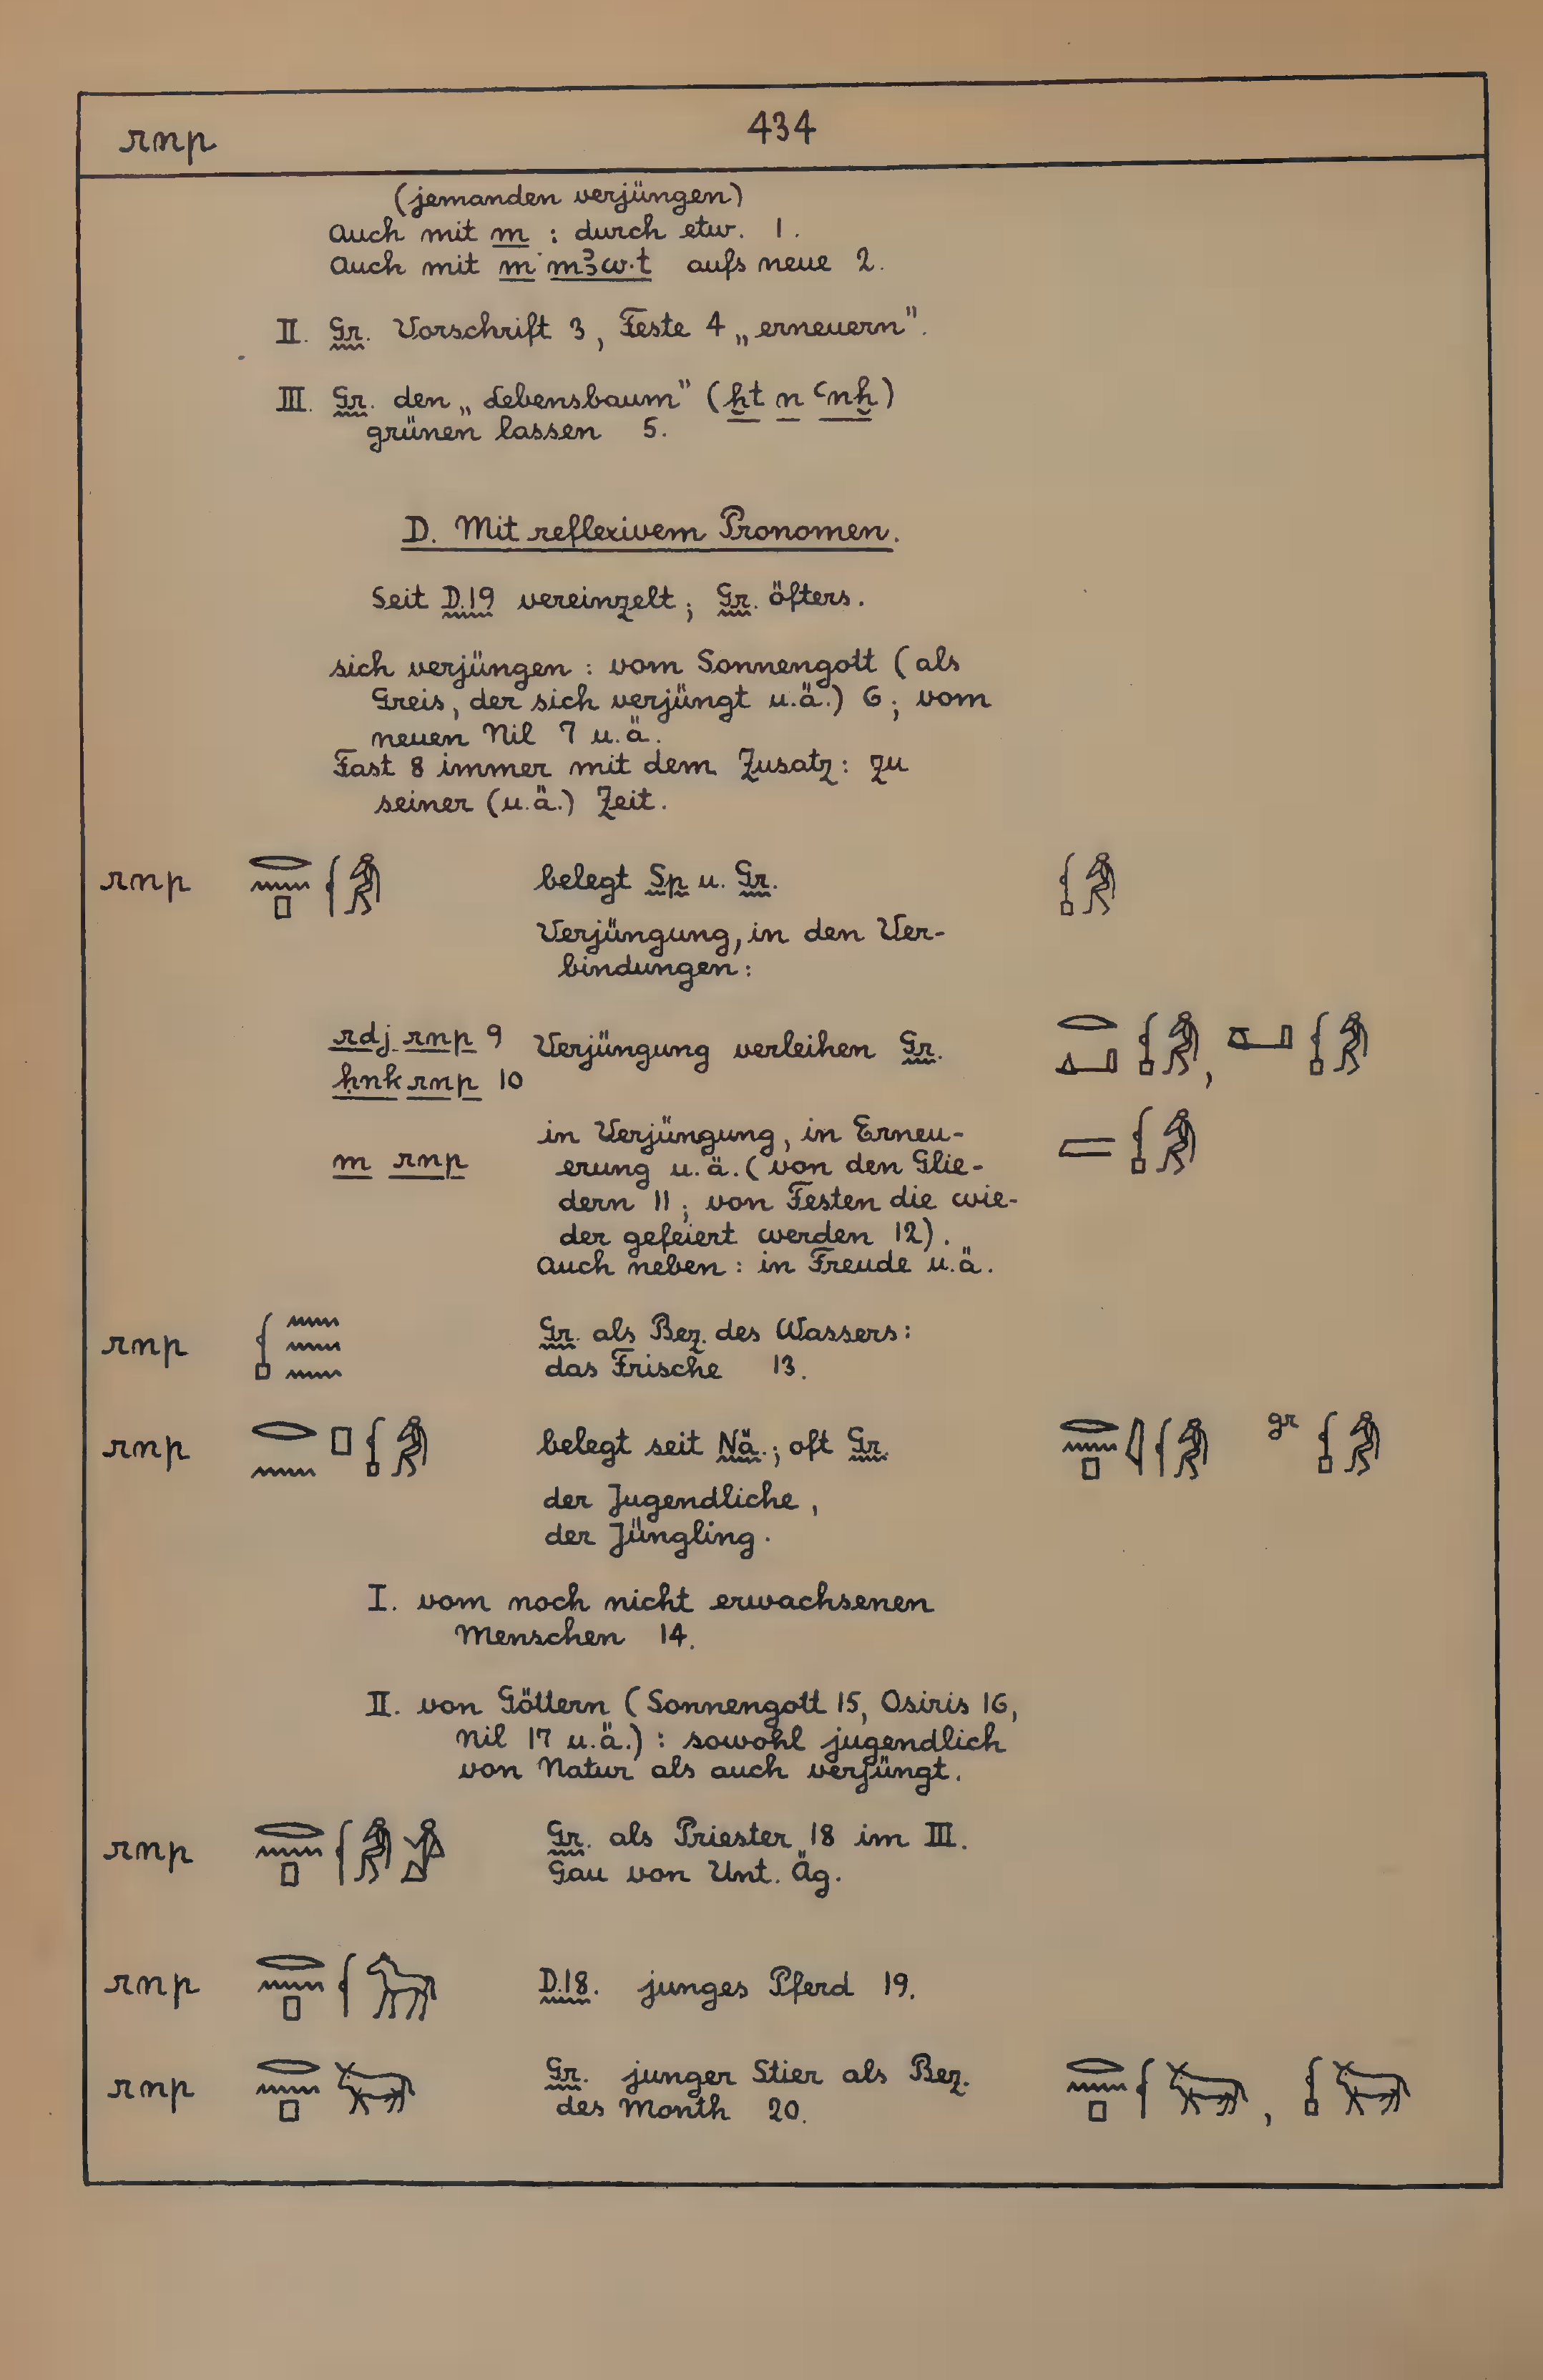 rnp 434
(jemanden verjüngen)
Auch mit m : durch etw. 1.
Auch mit m mꜣw.t aufs neue 2.
II. Gr. Vorschrift 3, Feste 4 „erneuern".
III. Gr. den „Lebensbaum" (ḫt n ꜥnḫ)
grünen lassen 5.
D. Mit reflexivem Pronomen.
Seit D.19 vereinzelt; Gr. öfters.
sich verjüngen : vom Sonnengott (als
Greis, der sich verjüngt u.ä.) 6; vom
neuen Nil 7 u.ä.
Fast 8 immer mit dem Zusatz: zu
seiner (u.ä.) Zeit.
rnp belegt Sp u. Gr.
Verjüngung, in den Ver-
bindungen:
rdj rnp 9 Verjüngung verleihen Gr.
ḥnk rnp 10
m rnp in Verjüngung, in Erneu-
erung u.ä. (von den Glie-
dern 11; von Festen die wie-
der gefeiert werden 12).
Auch neben : in Freude u.ä.
rnp Gr. als Bez. des Wassers:
das Frische 13.
rnp belegt seit Nä.; oft Gr. gr
der Jugendliche,
der Jüngling.
I. vom noch nicht erwachsenen
Menschen 14.
II. von Göttern (Sonnengott 15, Osiris 16,
Nil 17 u.ä.) : sowohl jugendlich
von Natur als auch verjüngt.
rnp Gr. als Priester 18 im III.
Gau von Unt. Äg.
rnp D.18. junges Pferd 19.
rnp Gr. junger Stier als Bez.
des Month 20.